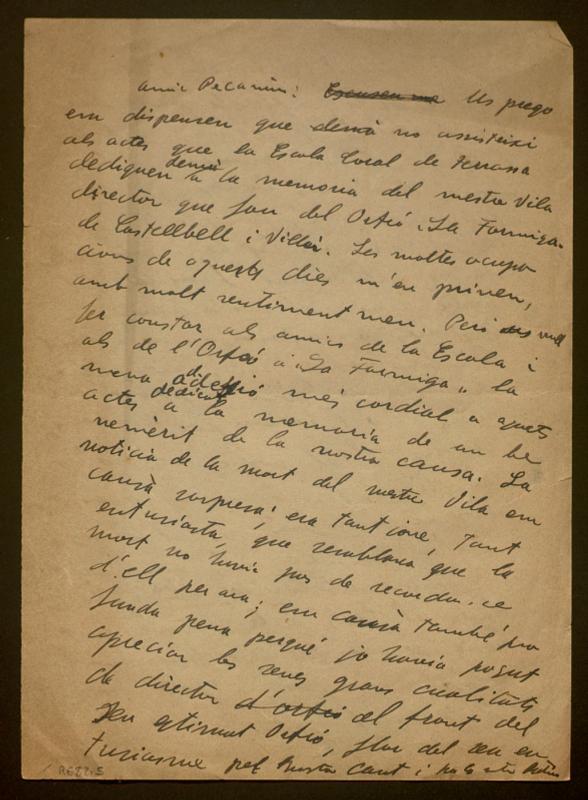 amic Pecanins: Escuseu-me Us prego
em dispenseu que demà no assisteixi
als actes que la Escola Coral de Terrassa
dediquen demà a la memoria del mestre Vila
director que fou del Orfió "La Formiga"
de Castellbell i Vilar. Les moltes ocupa-
cions de aquests dies m'en priven,
amb molt sentiment meu. Però us vull
fer constar als amics de la Escola i
als de l'Orfeó "La Formiga" la
meva adhesió més cordial a aquets
actes dedicats a la memoria de un be
nemèrit de la nostra causa. La
noticia de la mort del mestre Vila em
causà sorpresa; era tant jove, tant
entusiasta, que semblava que la
mort no havia pas de recordar-se
d'ell per ara; em causà també pro
funda pena perqué jo havia pogut
apreciar les seves grans cualitats
de director d'orfeó al front del
seu estimat Orfió, flor del seu en
tusiasme pel nostre cant i
R682.5